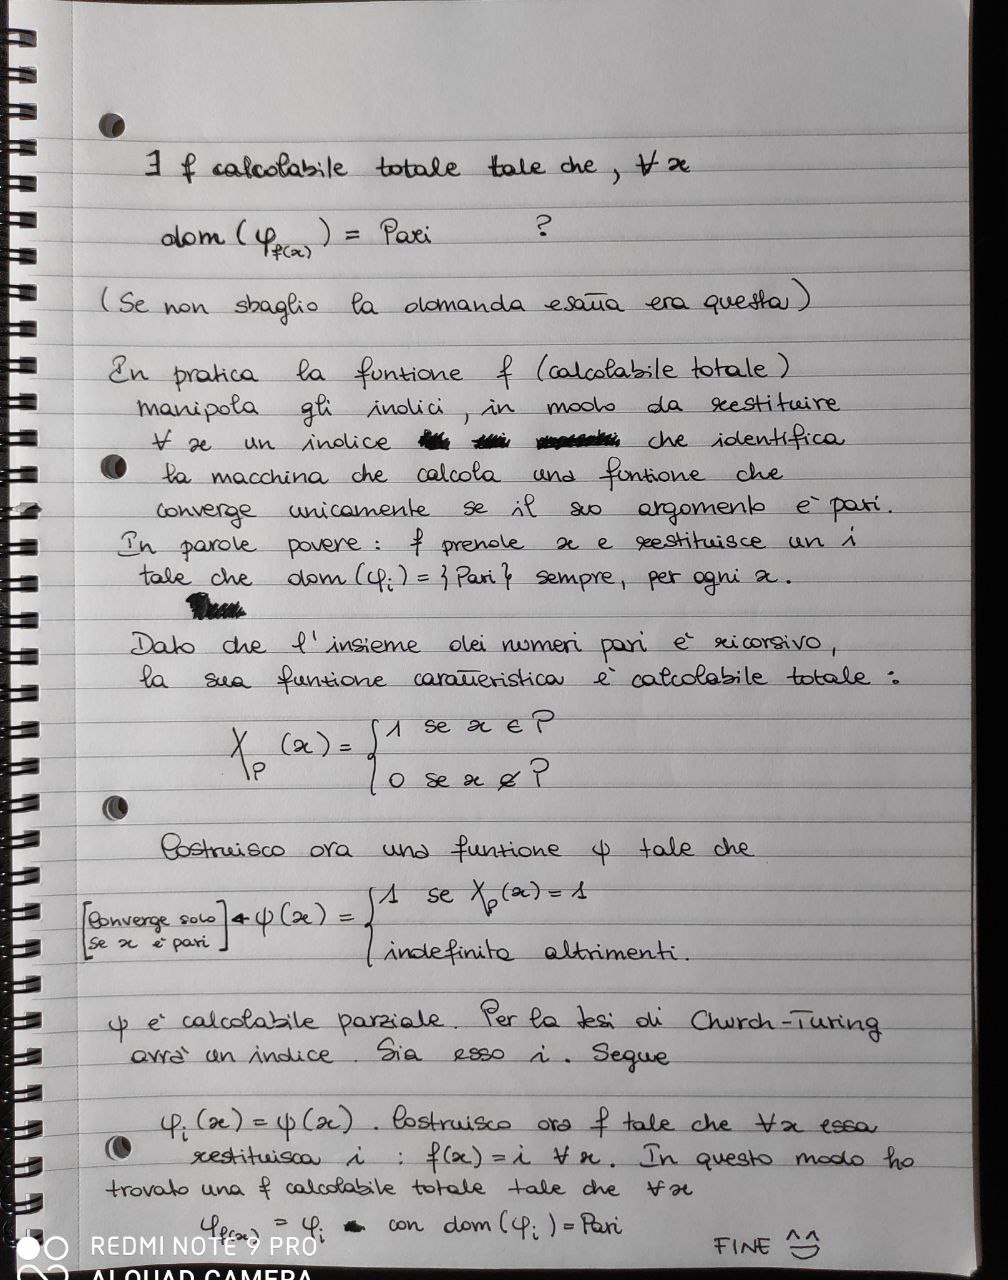 ∃ f calcolabile totale tale che, ∀ x
dom (φ_f(x)) = Pari ?
(Se non sbaglio la domanda esatta era questa)
In pratica la funzione f (calcolabile totale)
manipola gli indici, in modo da restituire
∀ x un indice che identifica
la macchina che calcola una funzione che
converge unicamente se il suo argomento è pari.
In parole povere: f prende x e restituisce un i
tale che dom (φ_i) = {Pari} sempre, per ogni x.
Dato che l'insieme dei numeri pari è ricorsivo,
la sua funzione caratteristica è calcolabile totale:
χ_P (x) = { 1 se x ∈ P
0 se x ∉ P
Costruisco ora una funzione ψ tale che
[Converge solo se x è pari] ← ψ(x) = { 1 se χ_P(x) = 1
indefinita altrimenti.
ψ è calcolabile parziale. Per la tesi di Church-Turing
avrà un indice. Sia esso i. Segue
φ_i (x) = ψ(x). Costruisco ora f tale che ∀x essa
restituisca i : f(x) = i ∀ x. In questo modo ho
trovato una f calcolabile totale tale che ∀x
φ_f(x) = φ_i con dom (φ_i) = Pari
FINE ^^
REDMI NOTE 9 PRO
AI QUAD CAMERA